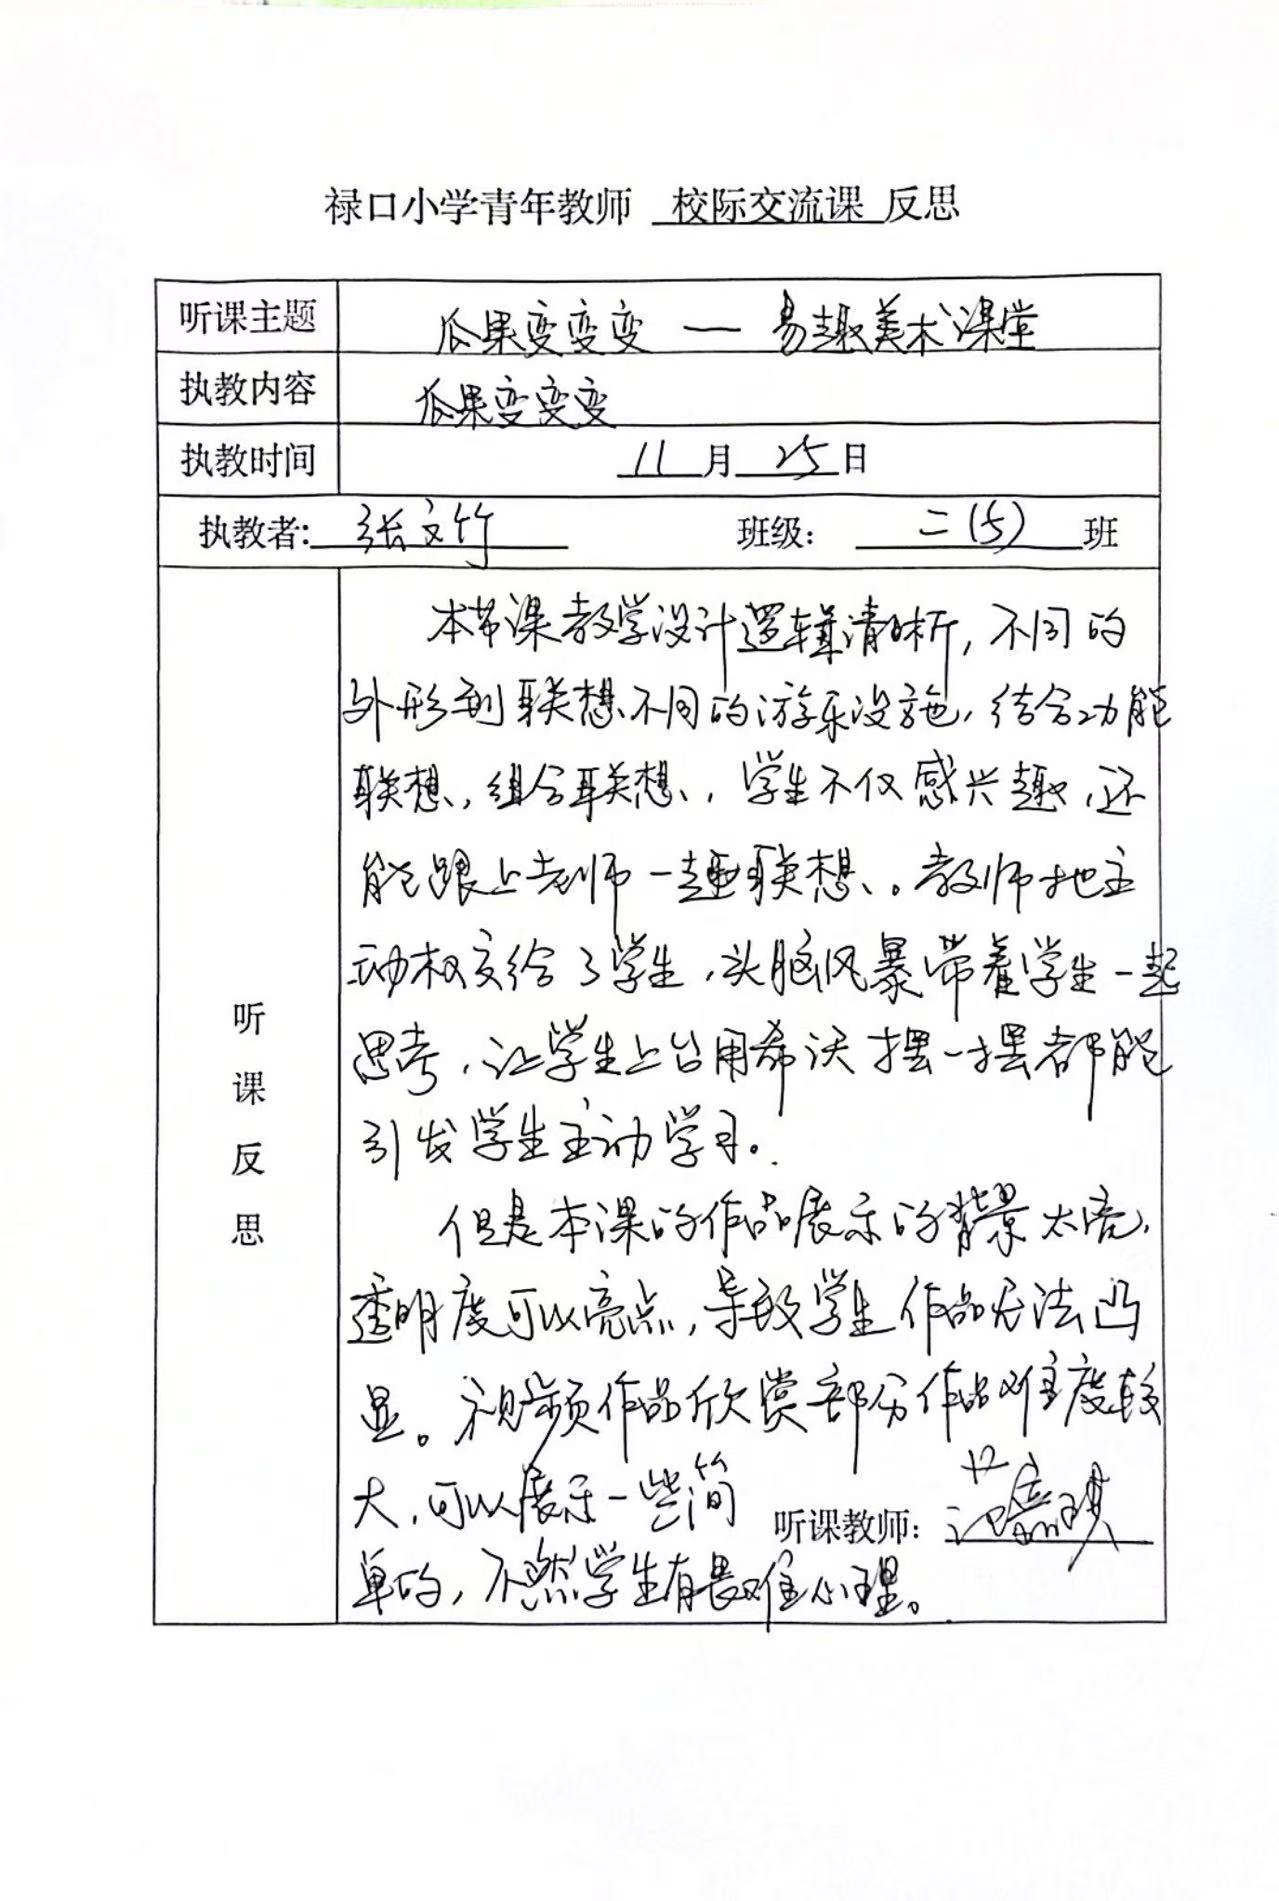 禄口小学青年教师 校际交流课 反思
听课主题 瓜果变变变 — 易趣美术课堂
执教内容 瓜果变变变
执教时间 11月25日
执教者: 张文竹 班级: 二(5) 班
听课反思
本节课教学设计逻辑清晰,不同的
外形到联想不同的游乐设施,结合功能
联想,组合联想,学生不仅感兴趣,还
能跟上老师一起联想。教师把主
动权交给了学生,头脑风暴带着学生一起
思考,让学生上台用希沃摆一摆都能
引发学生主动学习。
但是本课的作品展示的背景太亮,
透明度可以亮点,导致学生作品无法凸
显。视频作品欣赏部分作品难度较
大,可以展示一些简
听课教师: 范
单的,不然学生有畏难心理。